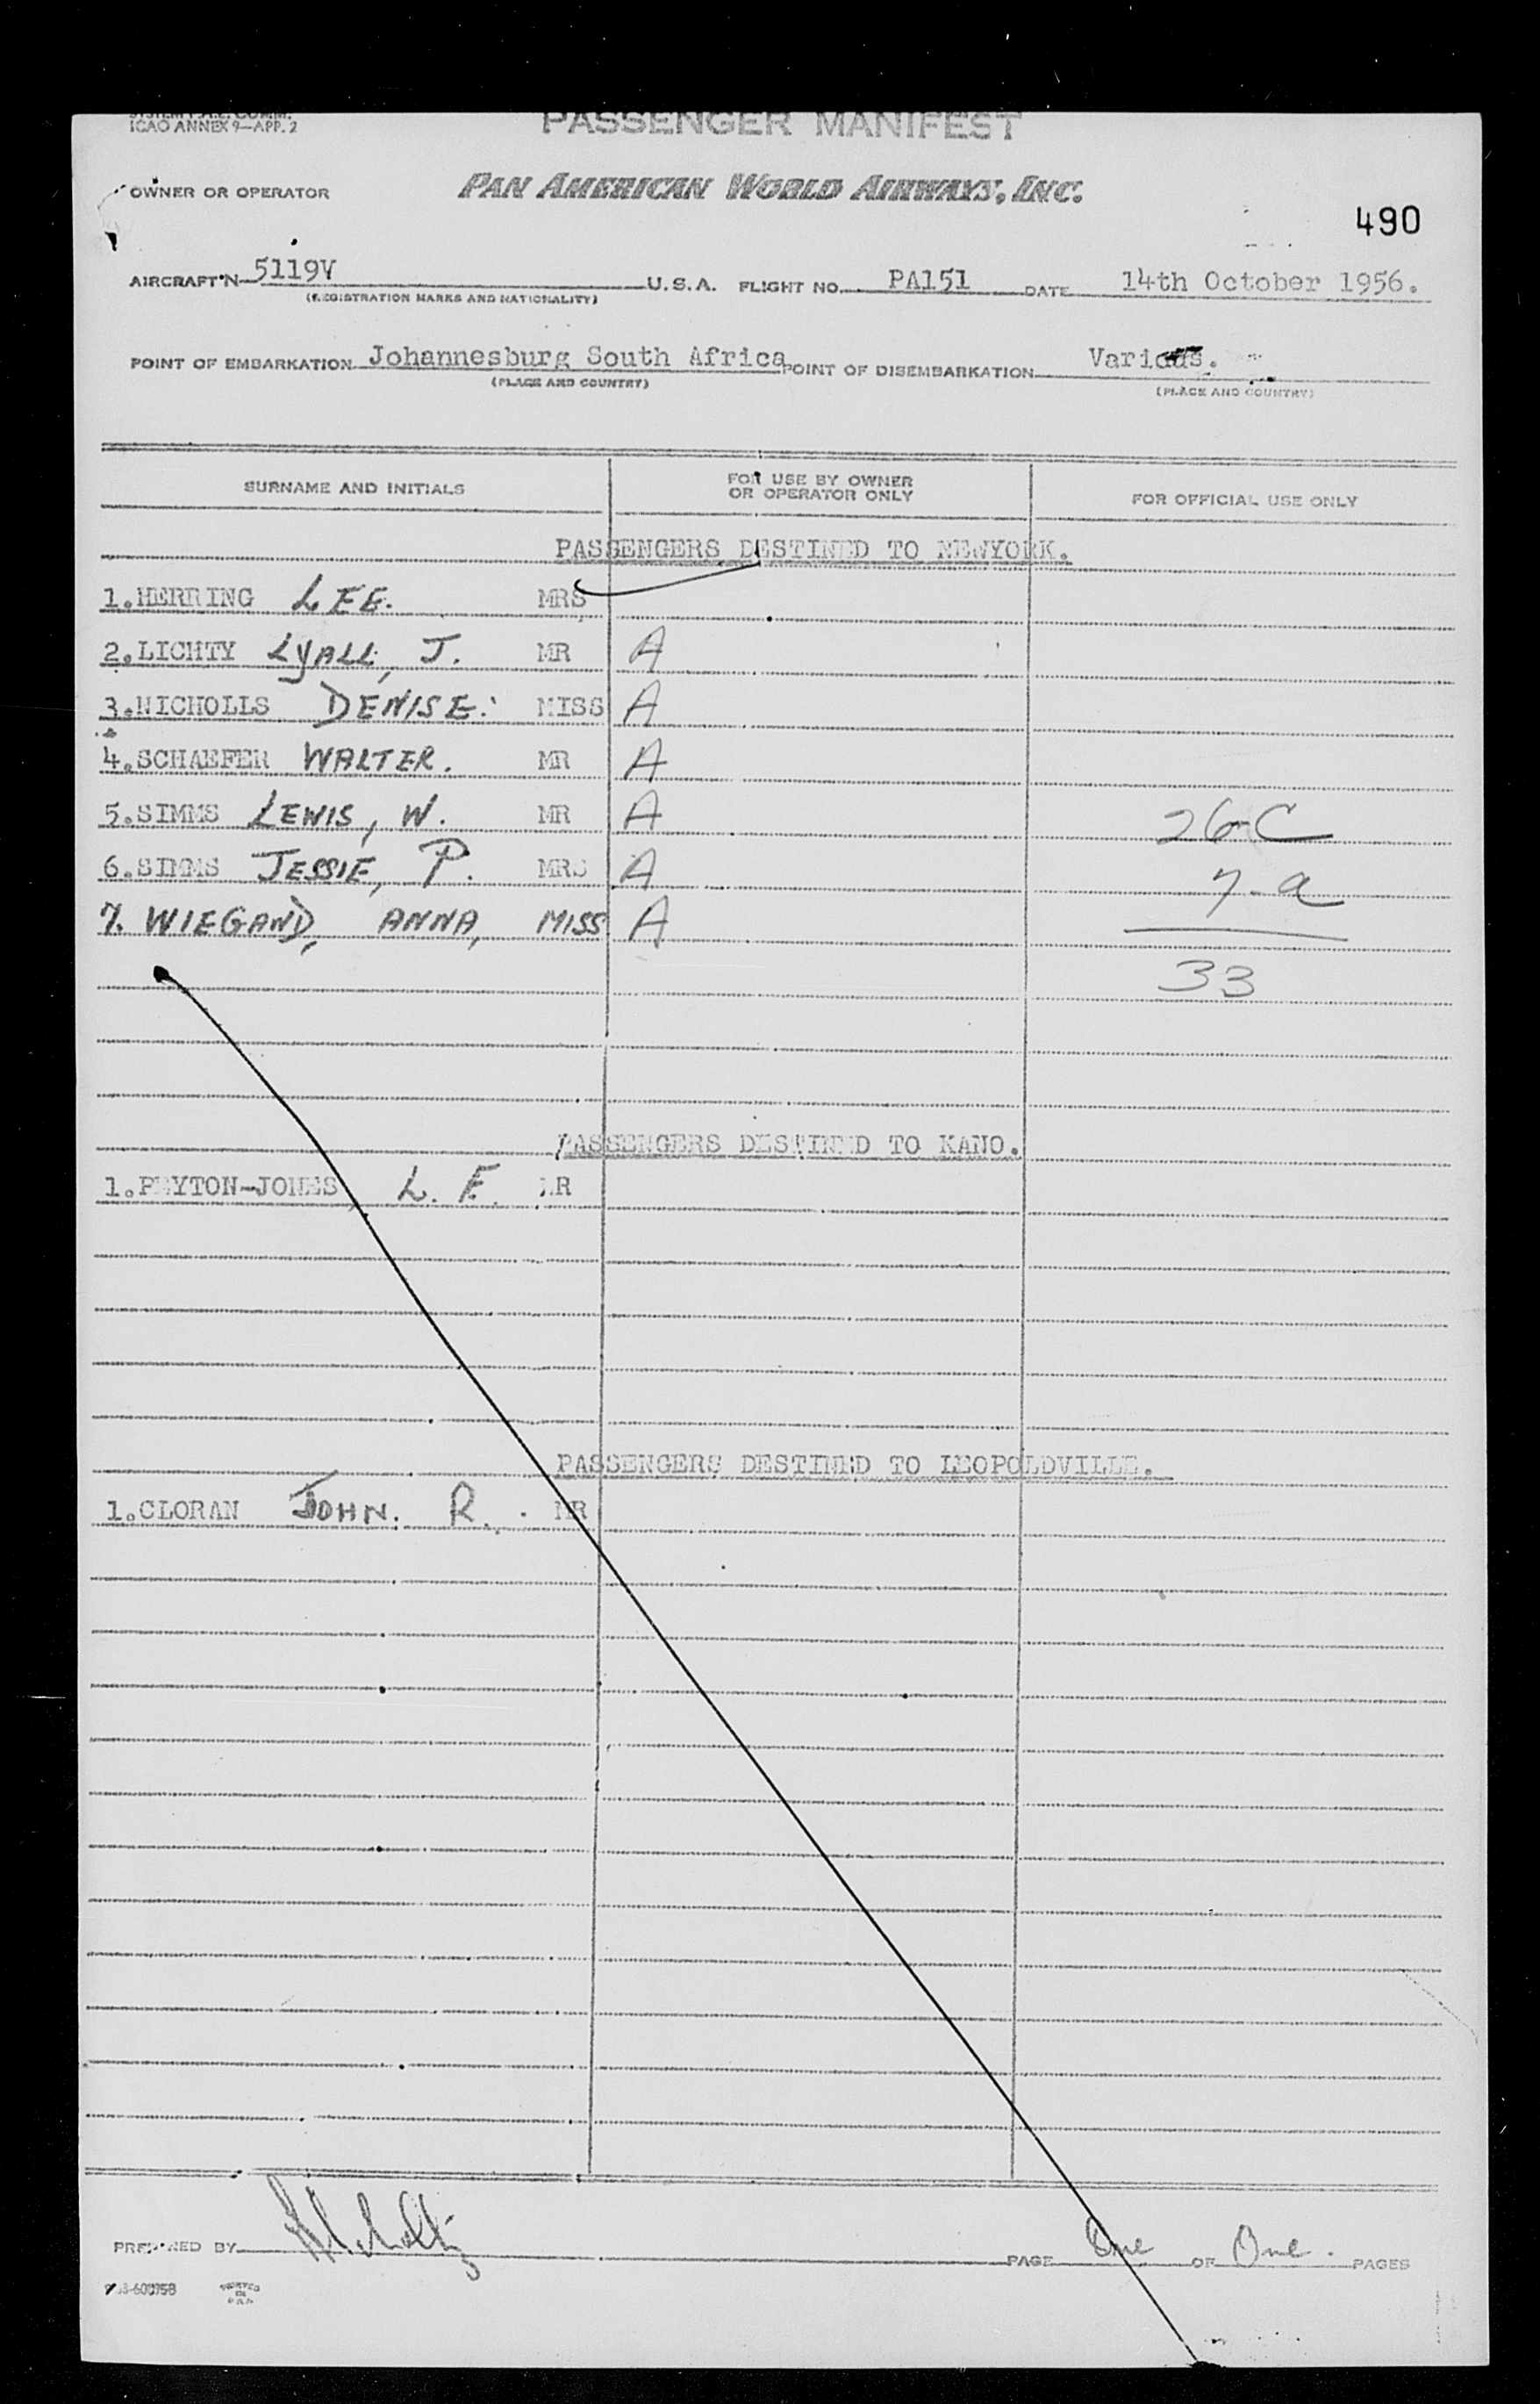 ICAO ANNEX 9—APP. 2
PASSENGER MANIFEST
OWNER OR OPERATOR PAN AMERICAN WORLD AIRWAYS, INC.
490
AIRCRAFT N 5119V U.S.A. FLIGHT NO. PA151 DATE 14th October 1956.
(REGISTRATION MARKS AND NATIONALITY)
POINT OF EMBARKATION Johannesburg South Africa POINT OF DISEMBARKATION Various.
(PLACE AND COUNTRY) (PLACE AND COUNTRY)
SURNAME AND INITIALS FOR USE BY OWNER OR OPERATOR ONLY FOR OFFICIAL USE ONLY
PASSENGERS DESTINED TO NEWYORK.
1.HERRING LEE. MRS
2.LICHTY LYALL, J. MR A
3.NICHOLLS DENISE. MISS A
4.SCHAEFER WALTER. MR A
5.SIMMS LEWIS, W. MR A 26-C
6.SIMMS JESSIE, P. MRS A 7-a
7. WIEGAND, ANNA, MISS A
33
PASSENGERS DESTINED TO KANO.
1.PEYTON-JONES L. F. MR
PASSENGERS DESTINED TO LEOPOLDVILLE.
1.CLORAN JOHN. R. MR
PREPARED BY PAGE One OF One. PAGES
PRINTED IN